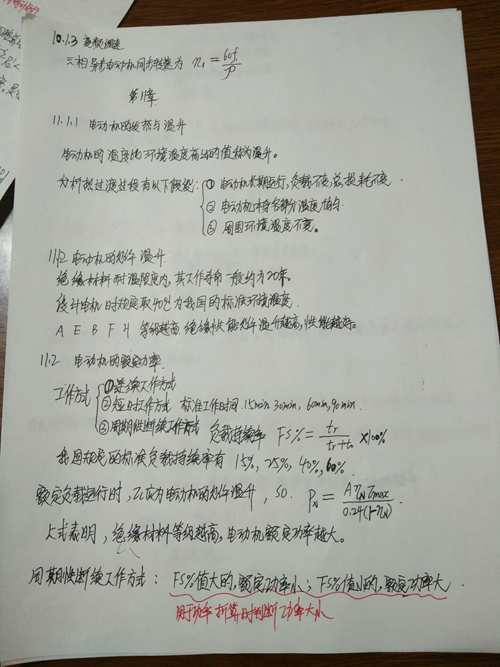 10.1.3 变频调速
三相异步电动机同步转速为 n₁ = 60f₁/p
第11章
11.1.1 电动机的发热与温升
电动机的温度比环境温度高出的值称为温升。
分析热过渡过程有以下假设: ① 电动机长期运行,负载不变,总损耗不变
② 电动机本身各部分温度均匀
③ 周围环境温度不变。
11.1.2 电动机的允许温升
绝缘材料耐温限度内,其工作寿命一般约为20年。
设计电机时规定取40℃为我国的标准环境温度
A E B F H 等级越高 绝缘性能允许温升越高,性能越好。
11.2 电动机的额定功率
工作方式 ① 连续工作方式
② 短时工作方式 标准工作时间 15min 30min, 60min, 90min
③ 周期性断续工作方式 负载持续率 FS% = tr/(tr+to) ×100%
我国规定的标准负载持续率有 15%, 25%, 40%, 60%
额定负载运行时,τ应为电动机的允许温升,so. P_N = Aη_Nτmax/0.24(1-η_N)
上式表明,绝缘材料等级越高,电动机额定功率越大。
周期性断续工作方式: FS%值大的,额定功率小; FS%值小的,额定功率大
用于功率折算时判断功率大小